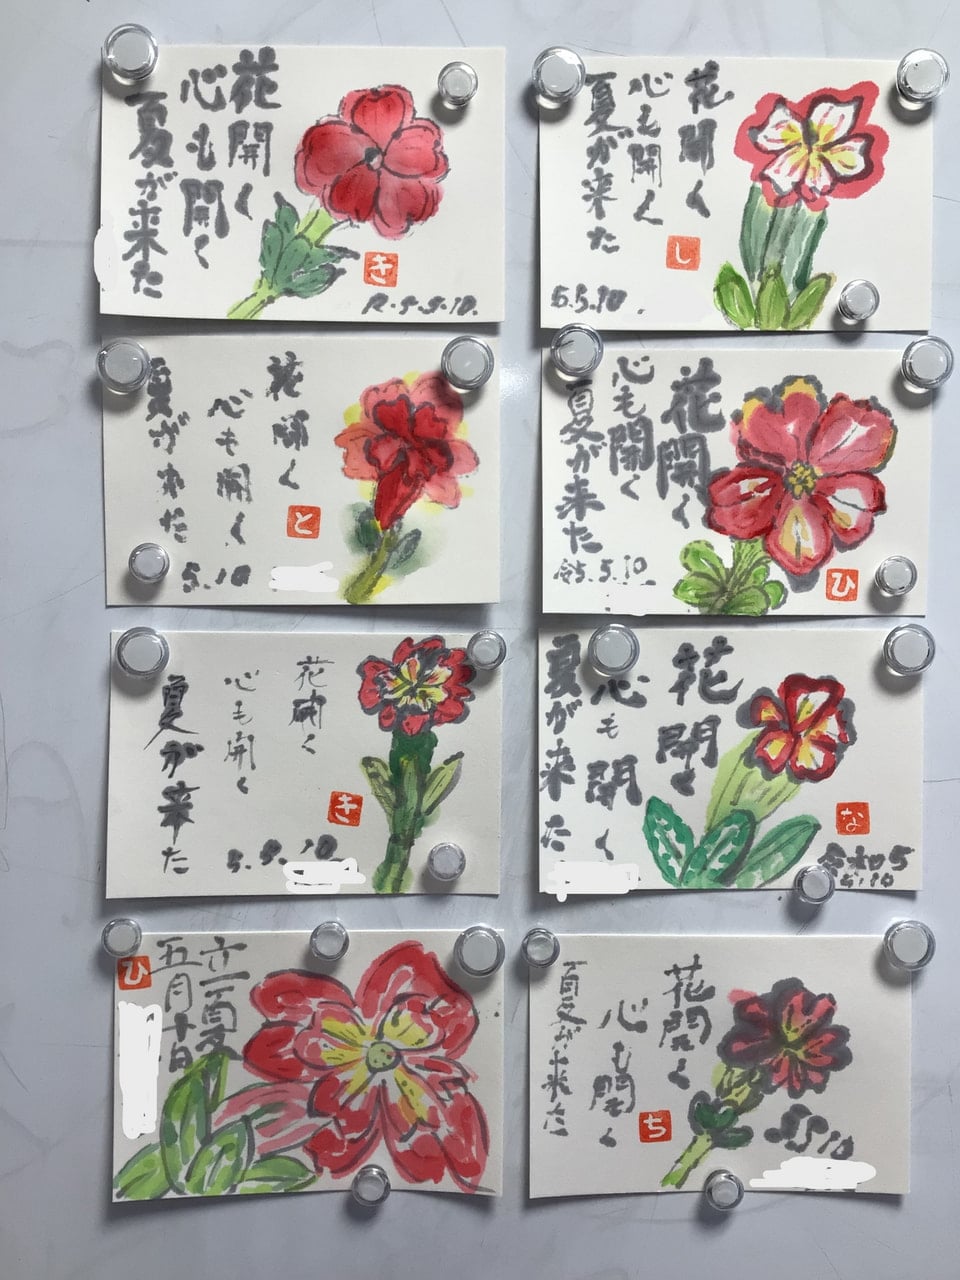 花開く
心も開く
夏が来た
き
R.5.5.10.
花開く
心も開く
夏が来た
し
5.5.10
花開く
心も開く
夏が来た
と
5.10
花開く
心も開く
夏が来た
令5.5.10
ひ
花開く
心も開く
夏が来た
き
5.5.10
花開く
心も開く
夏が来た
な
令和5
5.10
立夏
五月十日
ひ
花開く
心も開く
夏が来た
ち
5.5.10